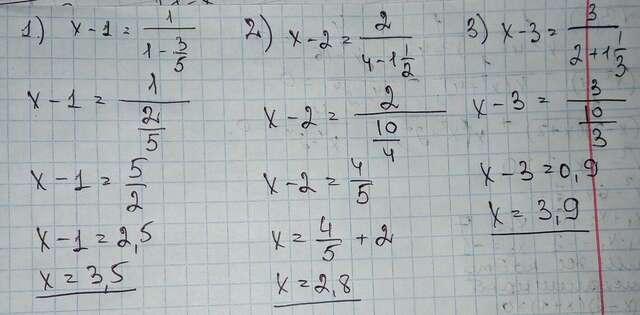 1.) x-1 = 1/(1 - 3/5)
x-1 = 1/(2/5)
x-1 = 5/2
x-1 = 2,5
x = 3,5
2) x-2 = 2/(4-1 1/2)
x-2 = 2/(10/4)
x-2 = 4/5
x = 4/5 + 2
x = 2,8
3) x-3 = 3/(2+1 1/3)
x-3 = 3/(10/3)
x-3 = 0,9
x = 3,9